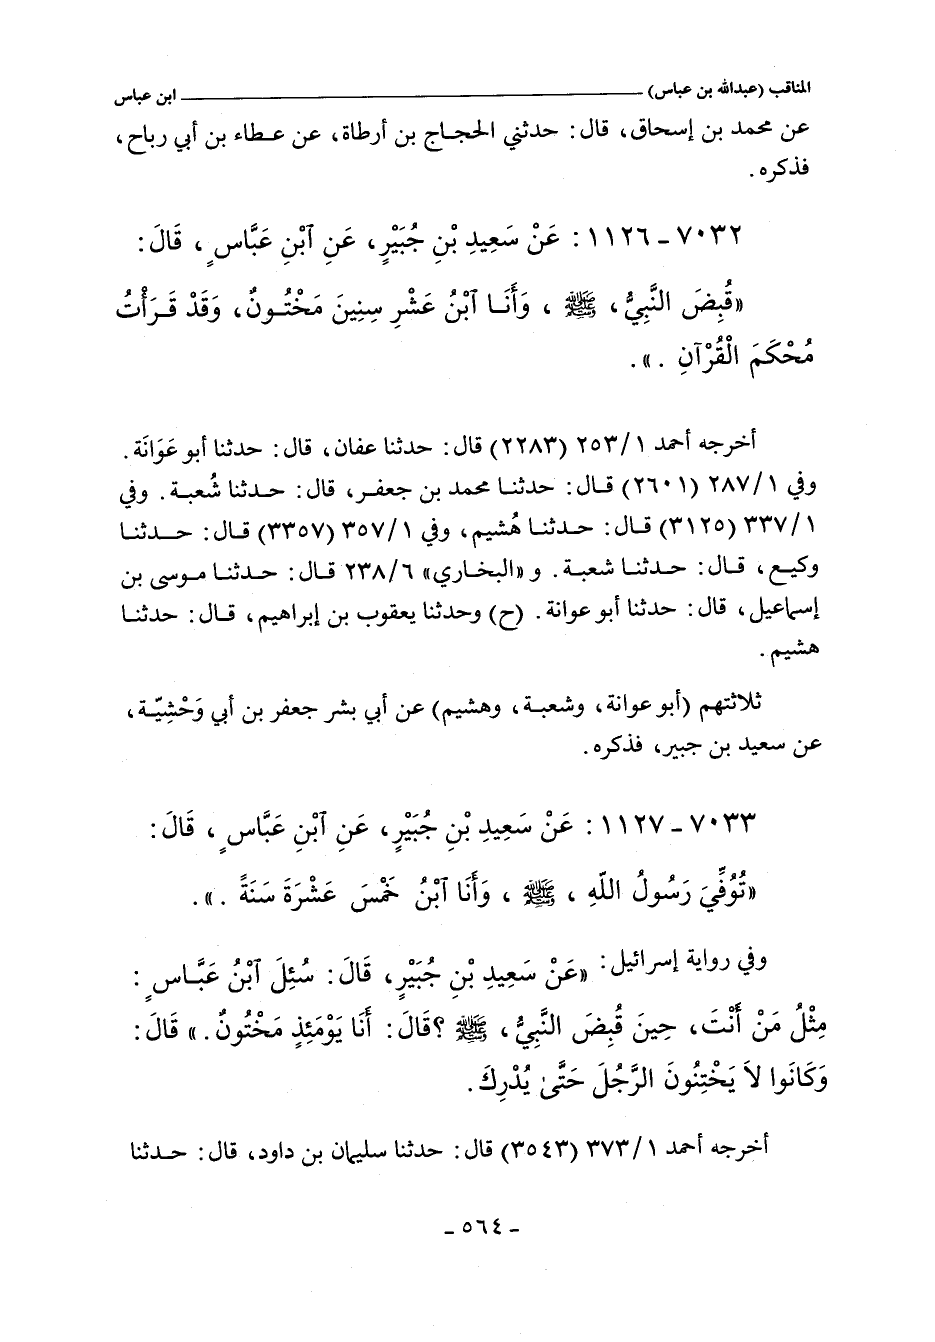 المناقب (عبدالله بن عباس) ــــــ ابن عباس
عن محمد بن إسحاق، قال: حدثني الحجاج بن أرطاة، عن عطاء بن أبي رباح،
فذكره.
٧٠٣٢ - ١١٢٦: عَنْ سَعِيدِ بْنِ جُبَيْرٍ، عَنِ ٱبْنِ عَبَّاسٍ، قَالَ:
«قُبِضَ النَّبِيُّ، ﷺ، وَأَنَا ٱبْنُ عَشْرِ سِنِينَ مَخْتُونٌ، وَقَدْ قَرَأْتُ
مُحْكَمَ الْقُرْآنِ.».
أخرجه أحمد ٢٥٣/١ (٢٢٨٣) قال: حدثنا عفان، قال: حدثنا أبو عَوَانَة.
وفي ٢٨٧/١ (٢٦٠١) قال: حدثنا محمد بن جعفر، قال: حدثنا شُعبة. وفي
٣٣٧/١ (٣١٢٥) قال: حدثنا هُشيم، وفي ٣٥٧/١ (٣٣٥٧) قال: حدثنا
وكيع، قال: حدثنا شعبة. و«البخاري» ٢٣٨/٦ قال: حدثنا موسى بن
إسماعيل، قال: حدثنا أبو عوانة. (ح) وحدثنا يعقوب بن إبراهيم، قال: حدثنا
هشيم.
ثلاثتهم (أبو عوانة، وشعبة، وهشيم) عن أبي بشر جعفر بن أبي وَحْشِيّة،
عن سعيد بن جبير، فذكره.
٧٠٣٣ - ١١٢٧: عَنْ سَعِيدِ بْنِ جُبَيْرٍ، عَنِ ٱبْنِ عَبَّاسٍ، قَالَ:
«تُوُفِّيَ رَسُولُ اللّهِ، ﷺ، وَأَنَا ٱبْنُ خَمْسَ عَشْرَةَ سَنَةً.».
وفي رواية إسرائيل: «عَنْ سَعِيدِ بْنِ جُبَيْرٍ، قَالَ: سُئِلَ ٱبْنُ عَبَّاسٍ:
مِثْلُ مَنْ أَنْتَ، حِينَ قُبِضَ النَّبِيُّ، ﷺ؟ قَالَ: أَنَا يَوْمَئِذٍ مَخْتُونٌ.» قَالَ:
وَكَانُوا لاَ يَخْتِنُونَ الرَّجُلَ حَتَّىٰ يُدْرِكَ.
أخرجه أحمد ٣٧٣/١ (٣٥٤٣) قال: حدثنا سليمان بن داود، قال: حدثنا
- ٥٦٤ -